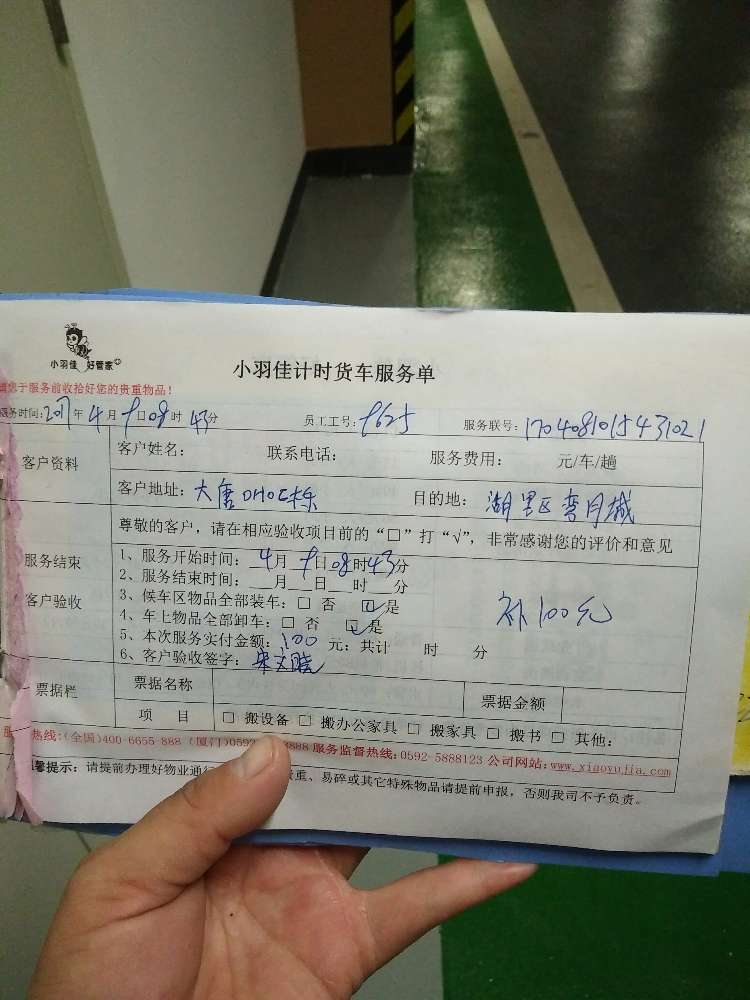 小羽佳 好管家
小羽佳计时货车服务单
您于服务前收拾好您的贵重物品！
服务时间：2017年4月9日08时43分 员工工号：9625 服务联号：170408101543102 1
客户资料
客户姓名： 联系电话： 服务费用： 元/车/趟
客户地址：大唐 目的地：湖里区弯月城
尊敬的客户，请在相应验收项目前的“□”打“√”，非常感谢您的评价和意见
服务结束
客户验收
1、服务开始时间：4月9日08时43分
2、服务结束时间：__月__日__时__分
3、候车区物品全部装车：□ 否 ☑是
4、车上物品全部卸车：□ 否 ☑是
补100元
5、本次服务实付金额：100元：共计 时 分
6、客户验收签字：
票据栏
票据名称 票据金额
项 目 □ 搬设备 □ 搬办公家具 □ 搬家具 □ 搬书 □ 其他：
热线:(全国)400-6655-888 (厦门)0592 888 服务监督热线:0592-5888123 公司网站:www.xiaoyujia.com
馨提示：请提前办理好物业通行 贵重、易碎或其它特殊物品请提前申报，否则我司不予负责。